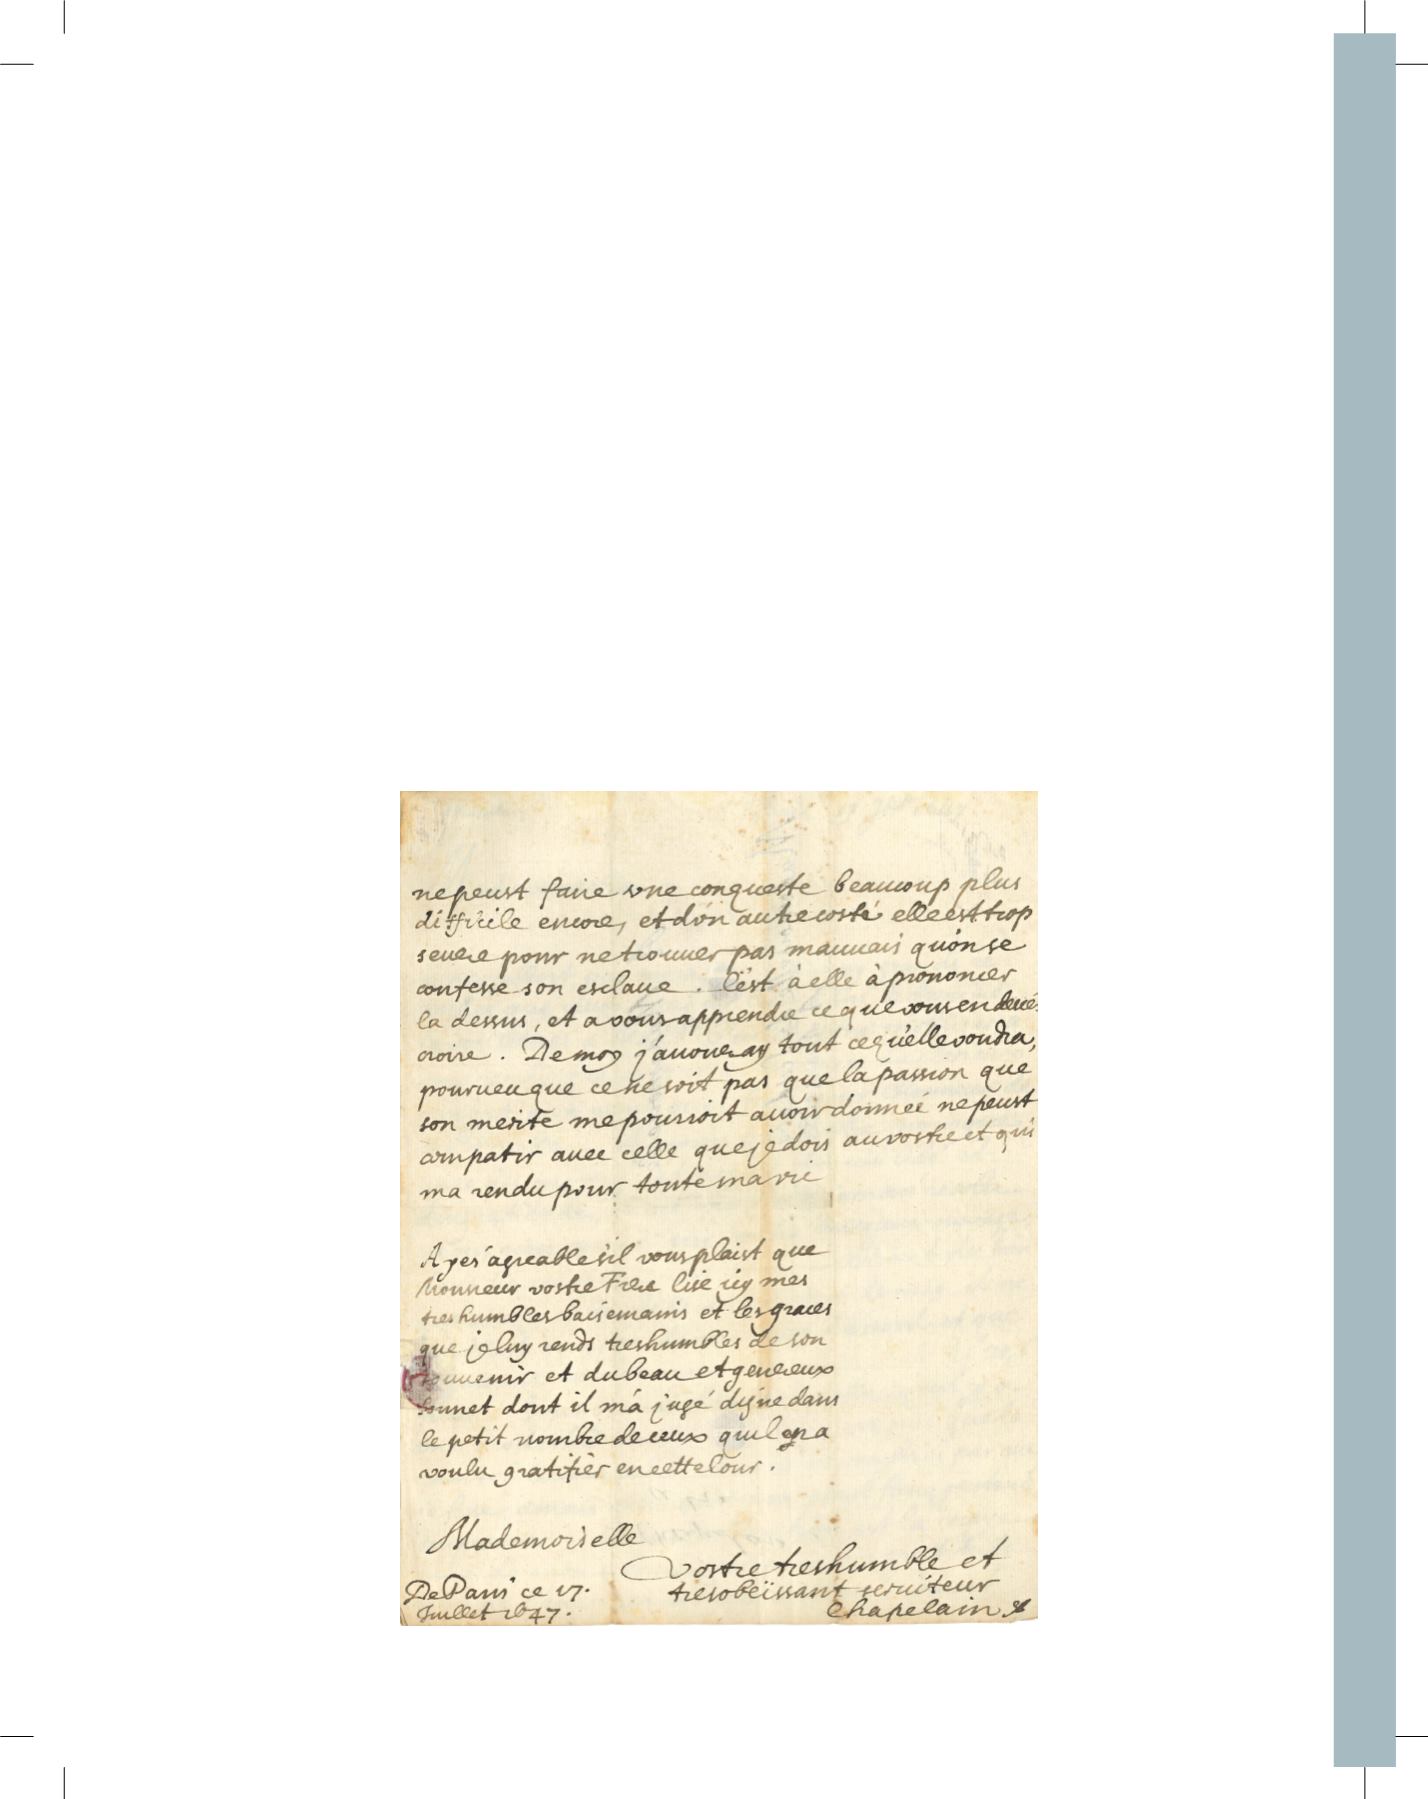 ne peust faire vne conqueste beaucoup plus
difficile encore, et d'ón autre costé elle est trop
seuere pour ne trouuer pas mauuais qu'ón se
confesse son esclaue. C'est à elle à prononcer
la dessus, et a vous apprendre ce que vous en deués
croire. De moy j'auoueray tout ce qu'elle voudra,
pourueu que ce ne soit pas que la passion que
son merite me pourroit auoir donneé ne peust
compatir auec celle que je dois au vostre et qui
ma rendu pour toute ma vie
Ayés agreable s'il vous plaist que
Monsieur vostre Frere lise icy mes
tres humbles baisemains et les graces
que je luy rends tres humbles de son
souuenir et du beau et genereux
sonnet dont il m'á jugé digne dans
le petit nombre de ceux quil en a
voulu gratifier en cette Cour.
Mademoiselle
Vostre treshumble et
tresobeïssant seruiteur
Chapelain
De Paris ce 17.
Juillet 1647.